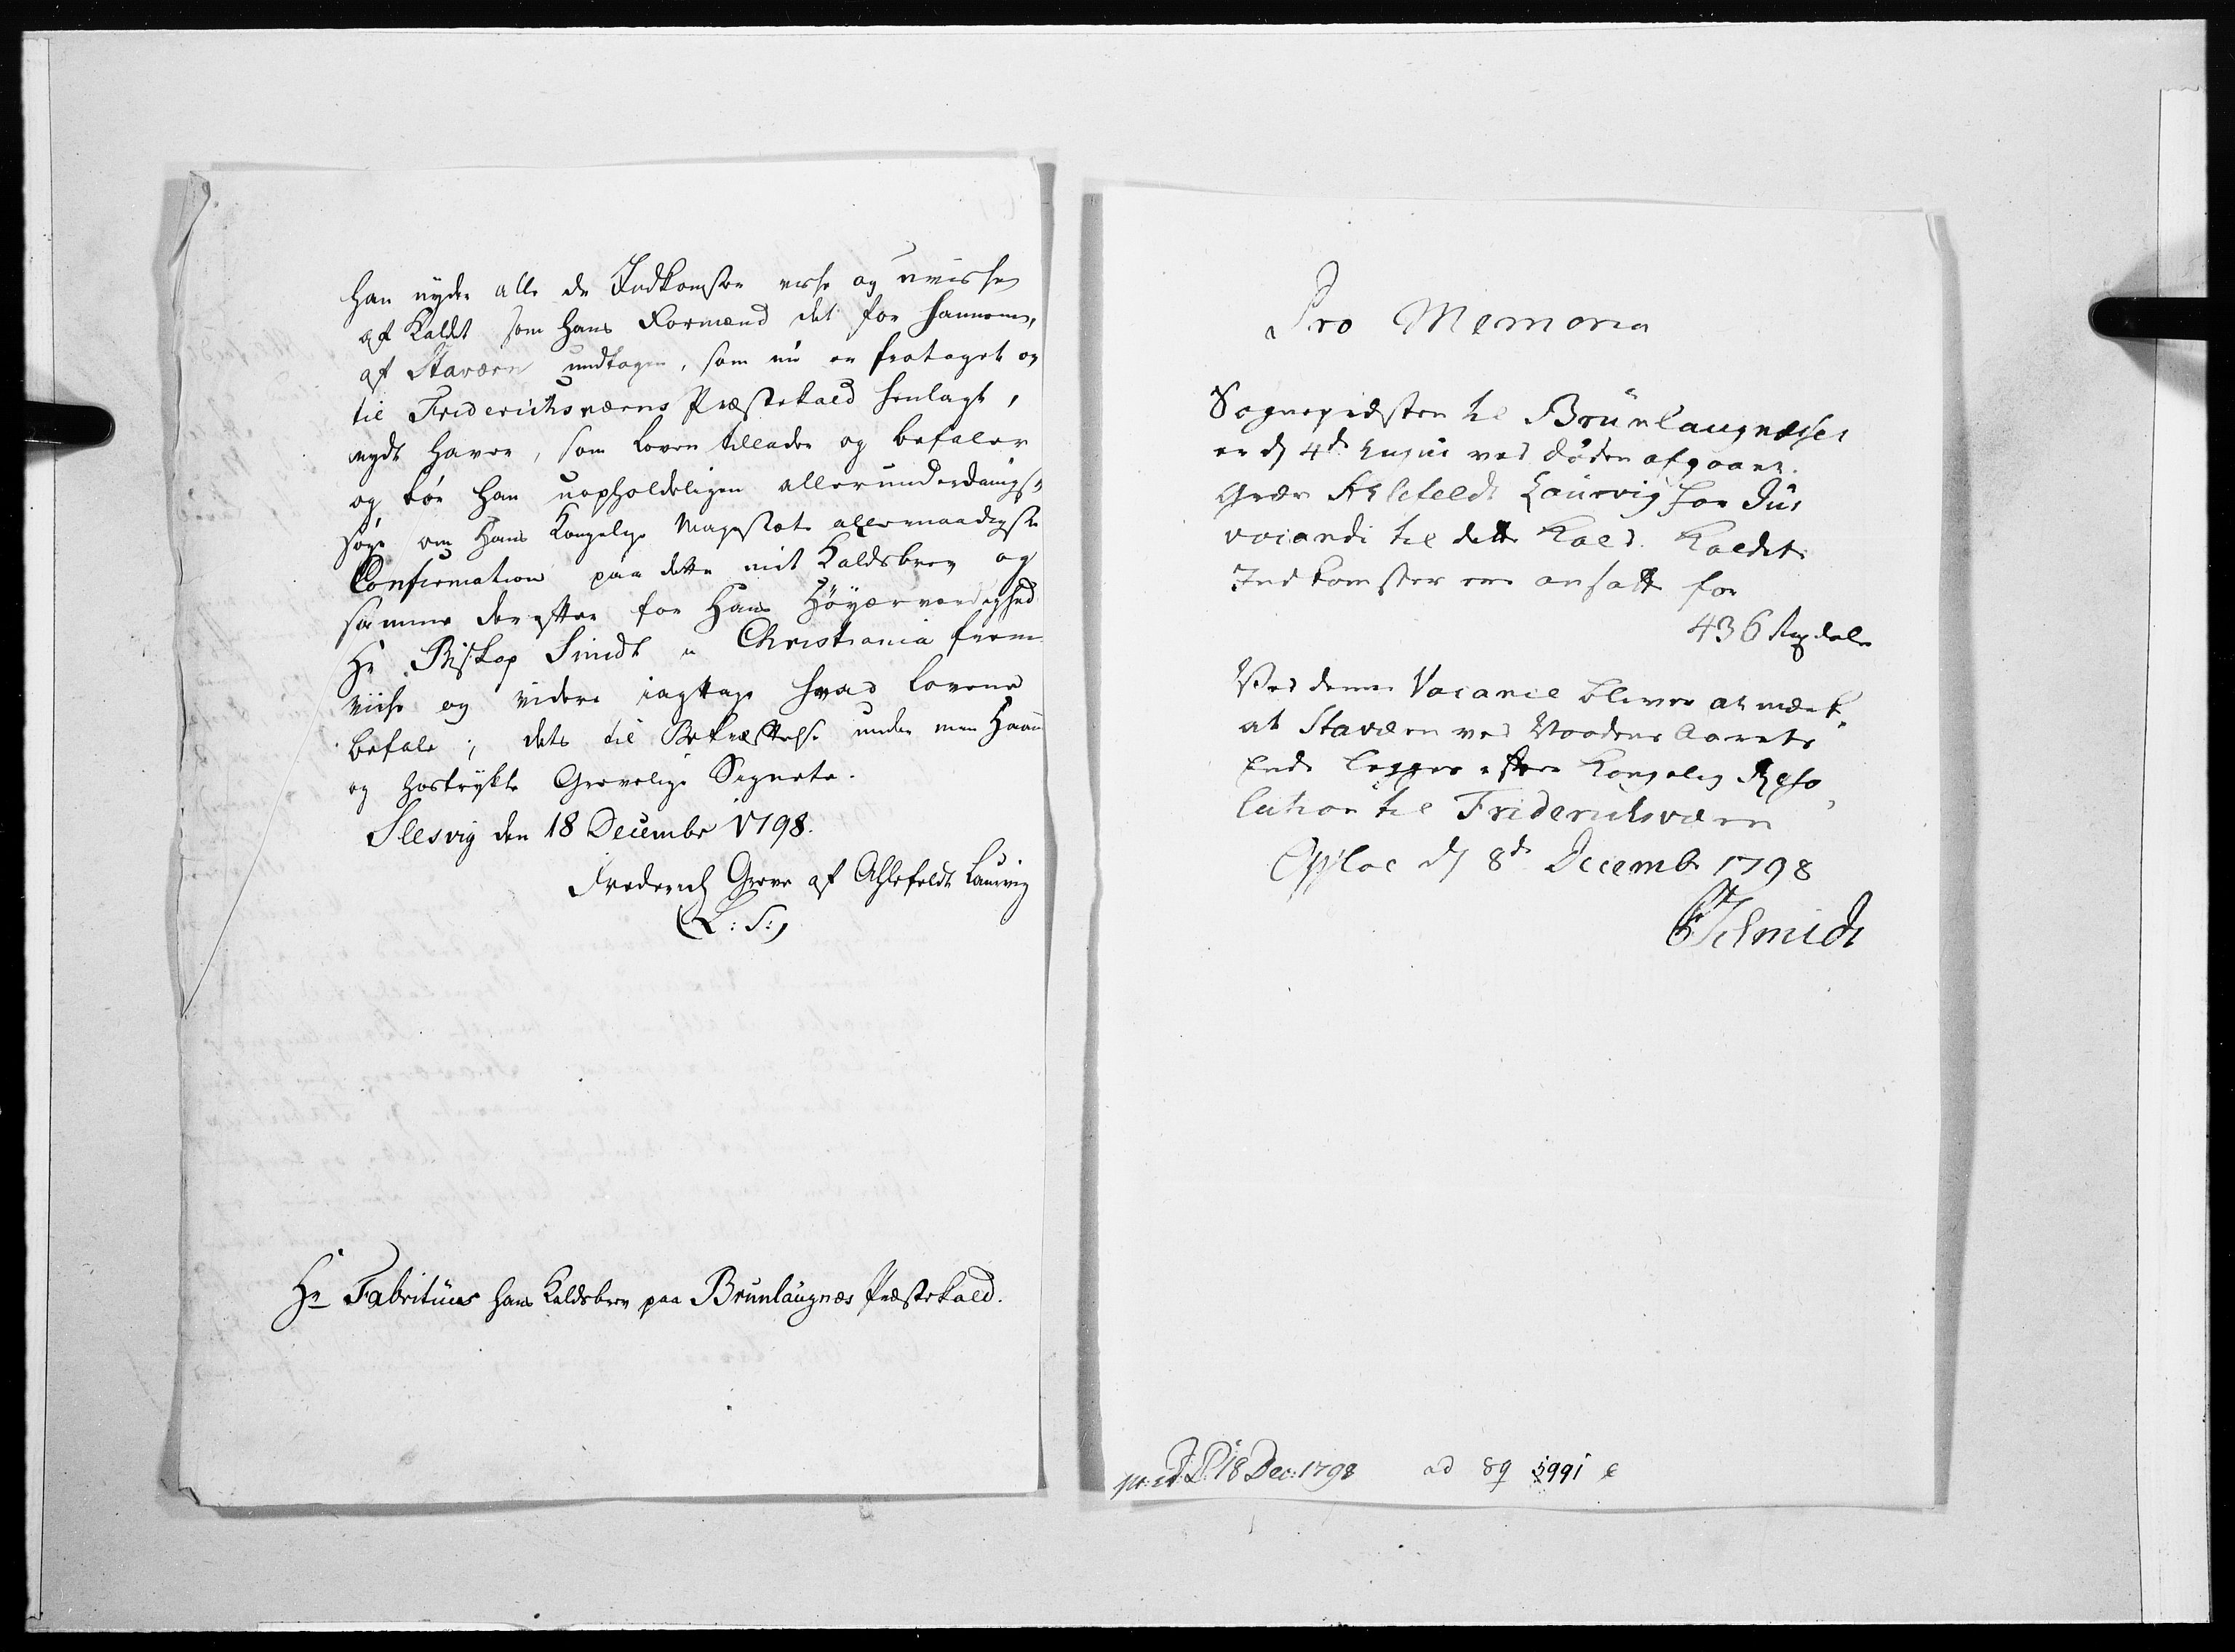 han nyde alle de Indkomster visse og uvisse
af Kaldet som hans Formænd det for hannem,
af Staværn undtagen, som nu er frataget og
til Friderichsværns Præstekald henlagt,
nydt haver, som Loven tillader og befaler
og bør han uopholdeligen allerunderdanigst
søge om Hans Kongelige Majestæts allernaadigste
Confirmation paa dette mit Kaldsbrev og
samme derefter for Hans Höyærværdighed
Hr. Biskop Smidt i Christiania frem
viise og videre iagttage hvad Lovene
befale; dets til Bekræftelse under min Haand
og hostrykte Grevelige Signete.
Slesvig den 18 Decembr 1798.
Frederich Greve af Ahlefeldt Laurvig
(L: S:)
Hr Fabritius hans Kaldsbrev paa Brunlaugnæs Præstekald.
Pro Memoria
Sognepræsten til Brünlaugnæsset
er d 4de hujus ved Döden afgaaet.
Grev Ahlefeldt Laurvig har Jus
vocandi til dette Kald. Kaldets
Indkomster ere ansatt for
436 Rixdaler
Ved denne Vacance bliver at mærke
at Staværn ved Naadens Aarets
Ende legges efter Kongelig Reso
lution til Friderichsværn
Opsloe d 8de Decembr 1798
Schmidt
18 Dec: 1798 ad 89 1991